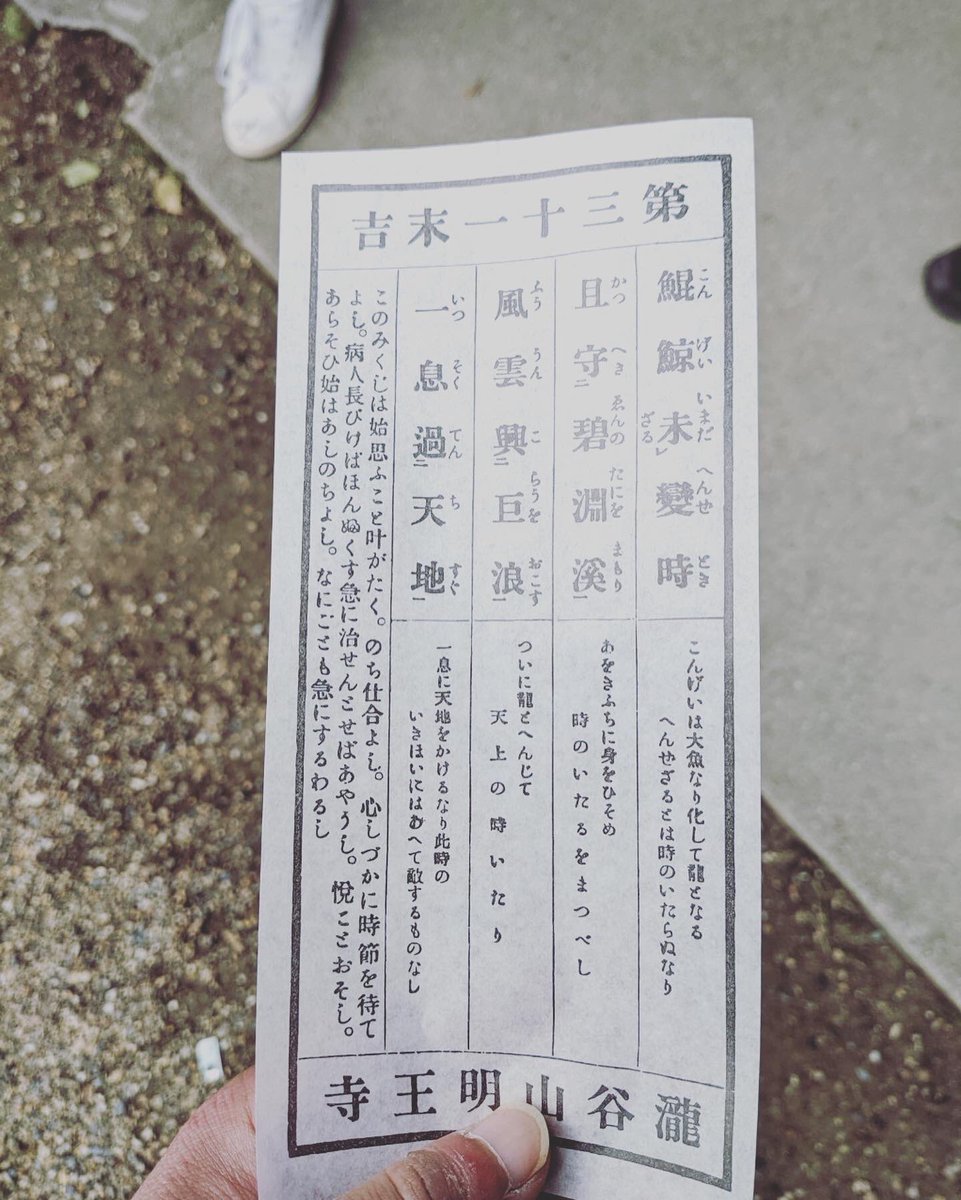 第三十一末吉
鯤鯨未變時
こんげいいまだへんせざるとき
且守碧淵溪
かつへきゑんのたにをまもり
風雲興巨浪
ふううんこらうをおこす
一息過天地
いつそくてんちすぐ
こんげいは大魚なり化して龍となる
へんせざるとは時のいたらぬなり
あをきふちに身をひそめ
時のいたるをまつべし
ついに龍とへんじて
天上の時いたり
一息に天地をかけるなり此時の
いきほいにはあへて敵するものなし
このみくじは始思ふこと叶がたく。のち仕合よし。心しづかに時節を待て
よし。病人長びけばほんぬくす急に治せんとせばあやうし。悦ことおそし。
あらそひ始はあしのちよし。なにごとも急にするわるし
瀧谷山明王寺